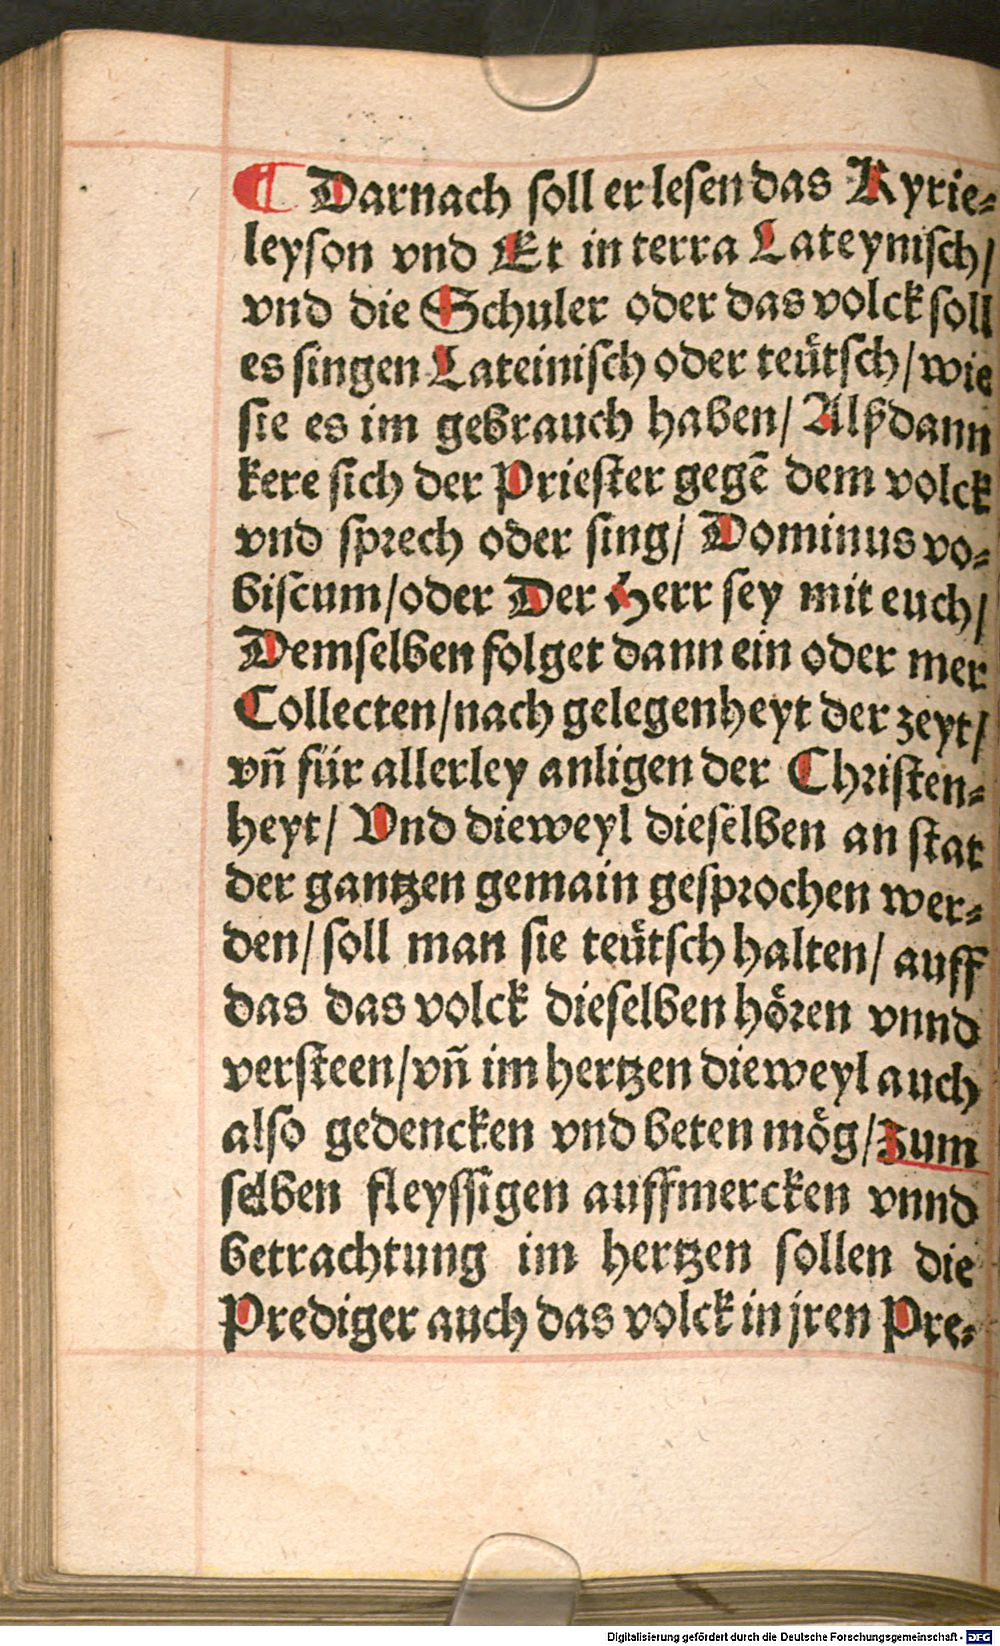 ¶ Darnach soll er lesen das Kyrie⸗
leyson vnd Et in terra Lateynisch/
vnd die Schuler oder das volck soll
es singen Lateinisch oder teütsch/ wie
sie es im gebrauch haben/ Alßdann
kere sich der Priester gegē dem volck
vnd sprech oder sing/ Dominus vo⸗
biscum/ oder Der Herr sey mit euch/
Demselben folget dann ein oder mer
Collecten/ nach gelegenheyt der zeyt/
vñ für allerley anligen der Christen⸗
heyt/ Vnd dieweyl dieselben an stat
der gantzen gemain gesprochen wer⸗
den/ soll man sie teütsch halten/ auff
das das volck dieselben hören vnnd
versteen/ vñ im hertzen dieweyl auch
also gedencken vnd beten mög/ Zum
selben fleyssigen auffmercken vnnd
betrachtung im hertzen sollen die
Prediger auch das volck in jren Pre⸗
Digitalisierung gefördert durch die Deutsche Forschungsgemeinschaft - DFG